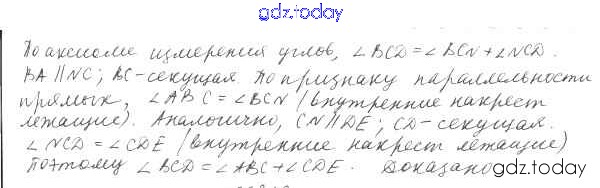 gdz.today
По аксиоме измерения углов, ∠BCD = ∠BCN + ∠NCD.
BA || NC; BC-секущая. По признаку параллельности
прямых, ∠ABC = ∠BCN (внутренние накрест
лежащие). Аналогично, CN || DE; CD-секущая.
∠NCD = ∠CDE (внутренние накрест лежащие)
Поэтому ∠BCD = ∠ABC + ∠CDE. Доказано
gdz.today